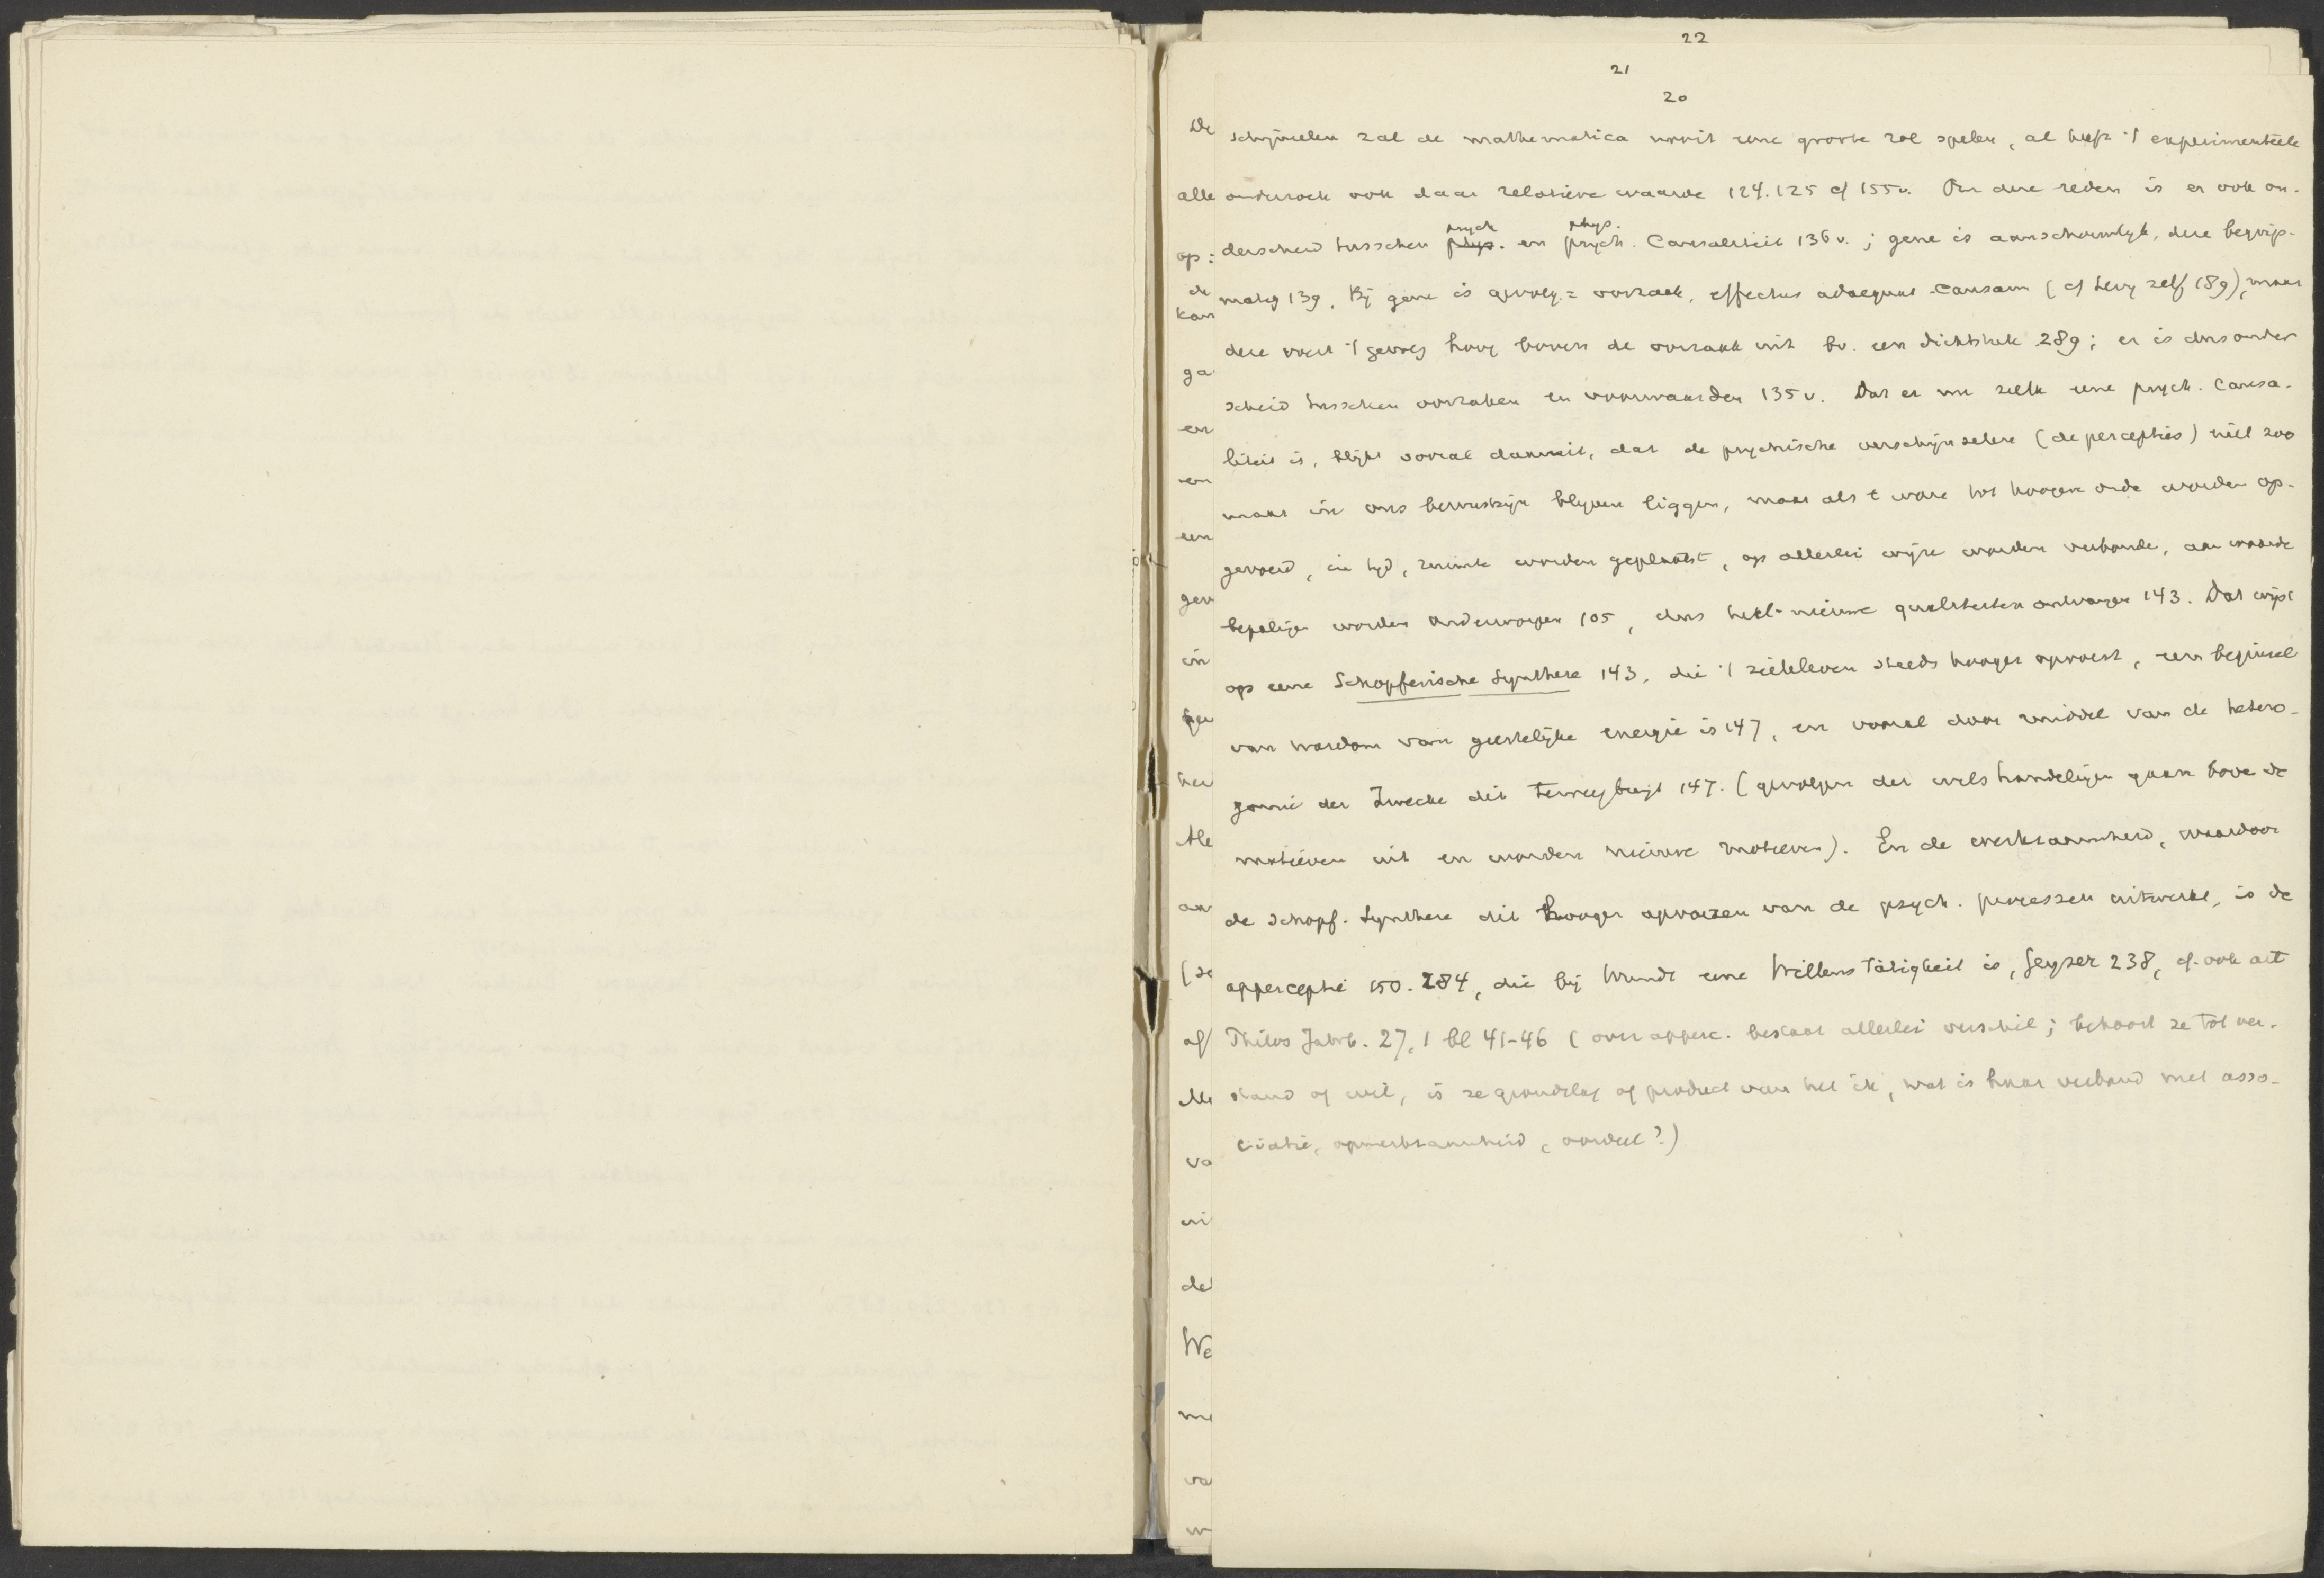 22
21
20
schijnselen zal de mathematica nooit eene groote rol spelen, al heeft 't experimenteele
onderzoek ook daar relatieve waarde 124. 125 cf 155v. Om deze reden is er ook on-
psych phys.
derscheid tusschen phys. en psych. Causaliteit 136v.; gene is aanschouwlyk, deze begrips-
matig 139. Bij gene is gevolg = oorzaak, effectus adaequat causam (cf zelf 189), maar
deze voert 't gevolg hoog boven de oorzaak uit bv. een dichtstuk 289; er is dus onder
scheid tusschen oorzaken en voorwaarden 135v. Dat er nu zulk eene psych. Causa-
liteit is, blijkt vooral daaruit, dat de psychische verschijnselen (de percepties) niet zoo
maar in ons bewustzijn blijven liggen, maar als t ware tot hoogere orde worden op-
gevoerd, in tyd, ruimte worden geplaatst, op allerlei wijze worden verbonde, aan waarde
bepalingen worden onderworpen 105, dus heel nieuwe qualiteiten ontvangen 143. Dat wijst
op eene Schopferische Synthese 143, die 't zieleleven steeds hooger opvoert, een beginsel
van wasdom van geestelijke energie is 147, en vooral door middel van de hetero-
gonie der Zwecke dit teweegbrengt 147. (gevolgen der wilshandelingen gaan bove de
motieven uit en worden nieuwe motieven). En de werkzaamheid, waardoor
de Schopf. Synthese dit hooger opvoeren van de psych. processen uitwerkt, is de
apperceptie 150. 284, die bij Wundt eene Willens Tätigkeit is, Geyser 238, cf. ook art
Philos Jahrb. 27, 1 bl 41-46 (over apperc. bestaat allerlei verschil; behoort ze tot ver-
stand of wil, is ze grondslag of product van het ik, wat is haar verband met asso-
ciatie, opmerkzaamheid, oordeel?)